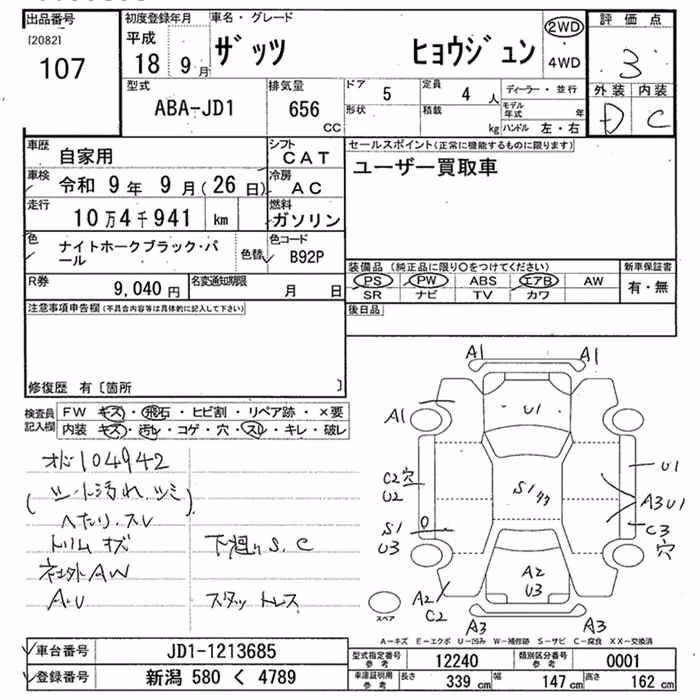 出品番号
[2082]
107
初度登録年月
平成
18 9 月
車名・グレード
ザッツ ヒョウジュン
2WD
・
4WD
評価点
3
外装 内装
D C
型式
ABA-JD1
排気量
656
CC
ドア 5
定員 4 人
形状
積載 kg
ディーラー・並行
モデル年式 年
ハンドル 左・右
車歴 自家用
シフト CAT
車検 令和 9 年 9 月(26 日)
冷房 AC
走行 10 万 4 千 941 km
燃料 ガソリン
色 ナイトホークブラック・パール
色替
色コード B92P
R券 9,040 円
名変通知期限 月 日
セールスポイント(正常に機能するものに限ります)
ユーザー買取車
装備品(純正品に限り○をつけてください)
PS PW ABS エアB AW
SR ナビ TV カワ
新車保証書
有・無
後日品
注意事項申告欄(不具合内容等は具体的に記入して下さい)
修復歴 有〔箇所 〕
検査員記入欄
FW キズ・飛石・ヒビ割・リペア跡・×要
内装 キズ・汚レ・コゲ・穴・スレ・キレ・破レ
104942
ヘたり.スレ
トリム キズ
下廻りS.C
社外AW
A・U
スタットレス
A1 A1
A1
U1
C2穴
U2
U1
S1
A3U1
S1
U3
C3
穴
A2
U3
A2
C2
A3 A3
スペア
A-キズ E-エクボ U-凹み W-補修跡 S-サビ C-腐食 XX-交換済
車台番号 JD1-1213685
登録番号 新潟 580 く 4789
型式指定番号
参考
12240
類別区分番号
参考
0001
車庫証明用
参考
長さ 339 cm 幅 147 cm 高さ 162 cm